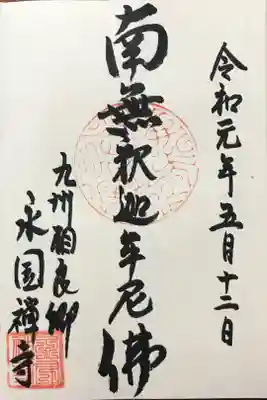 令和元年五月十二日
南無釈迦牟尼佛
九州相良郷
永国禅寺